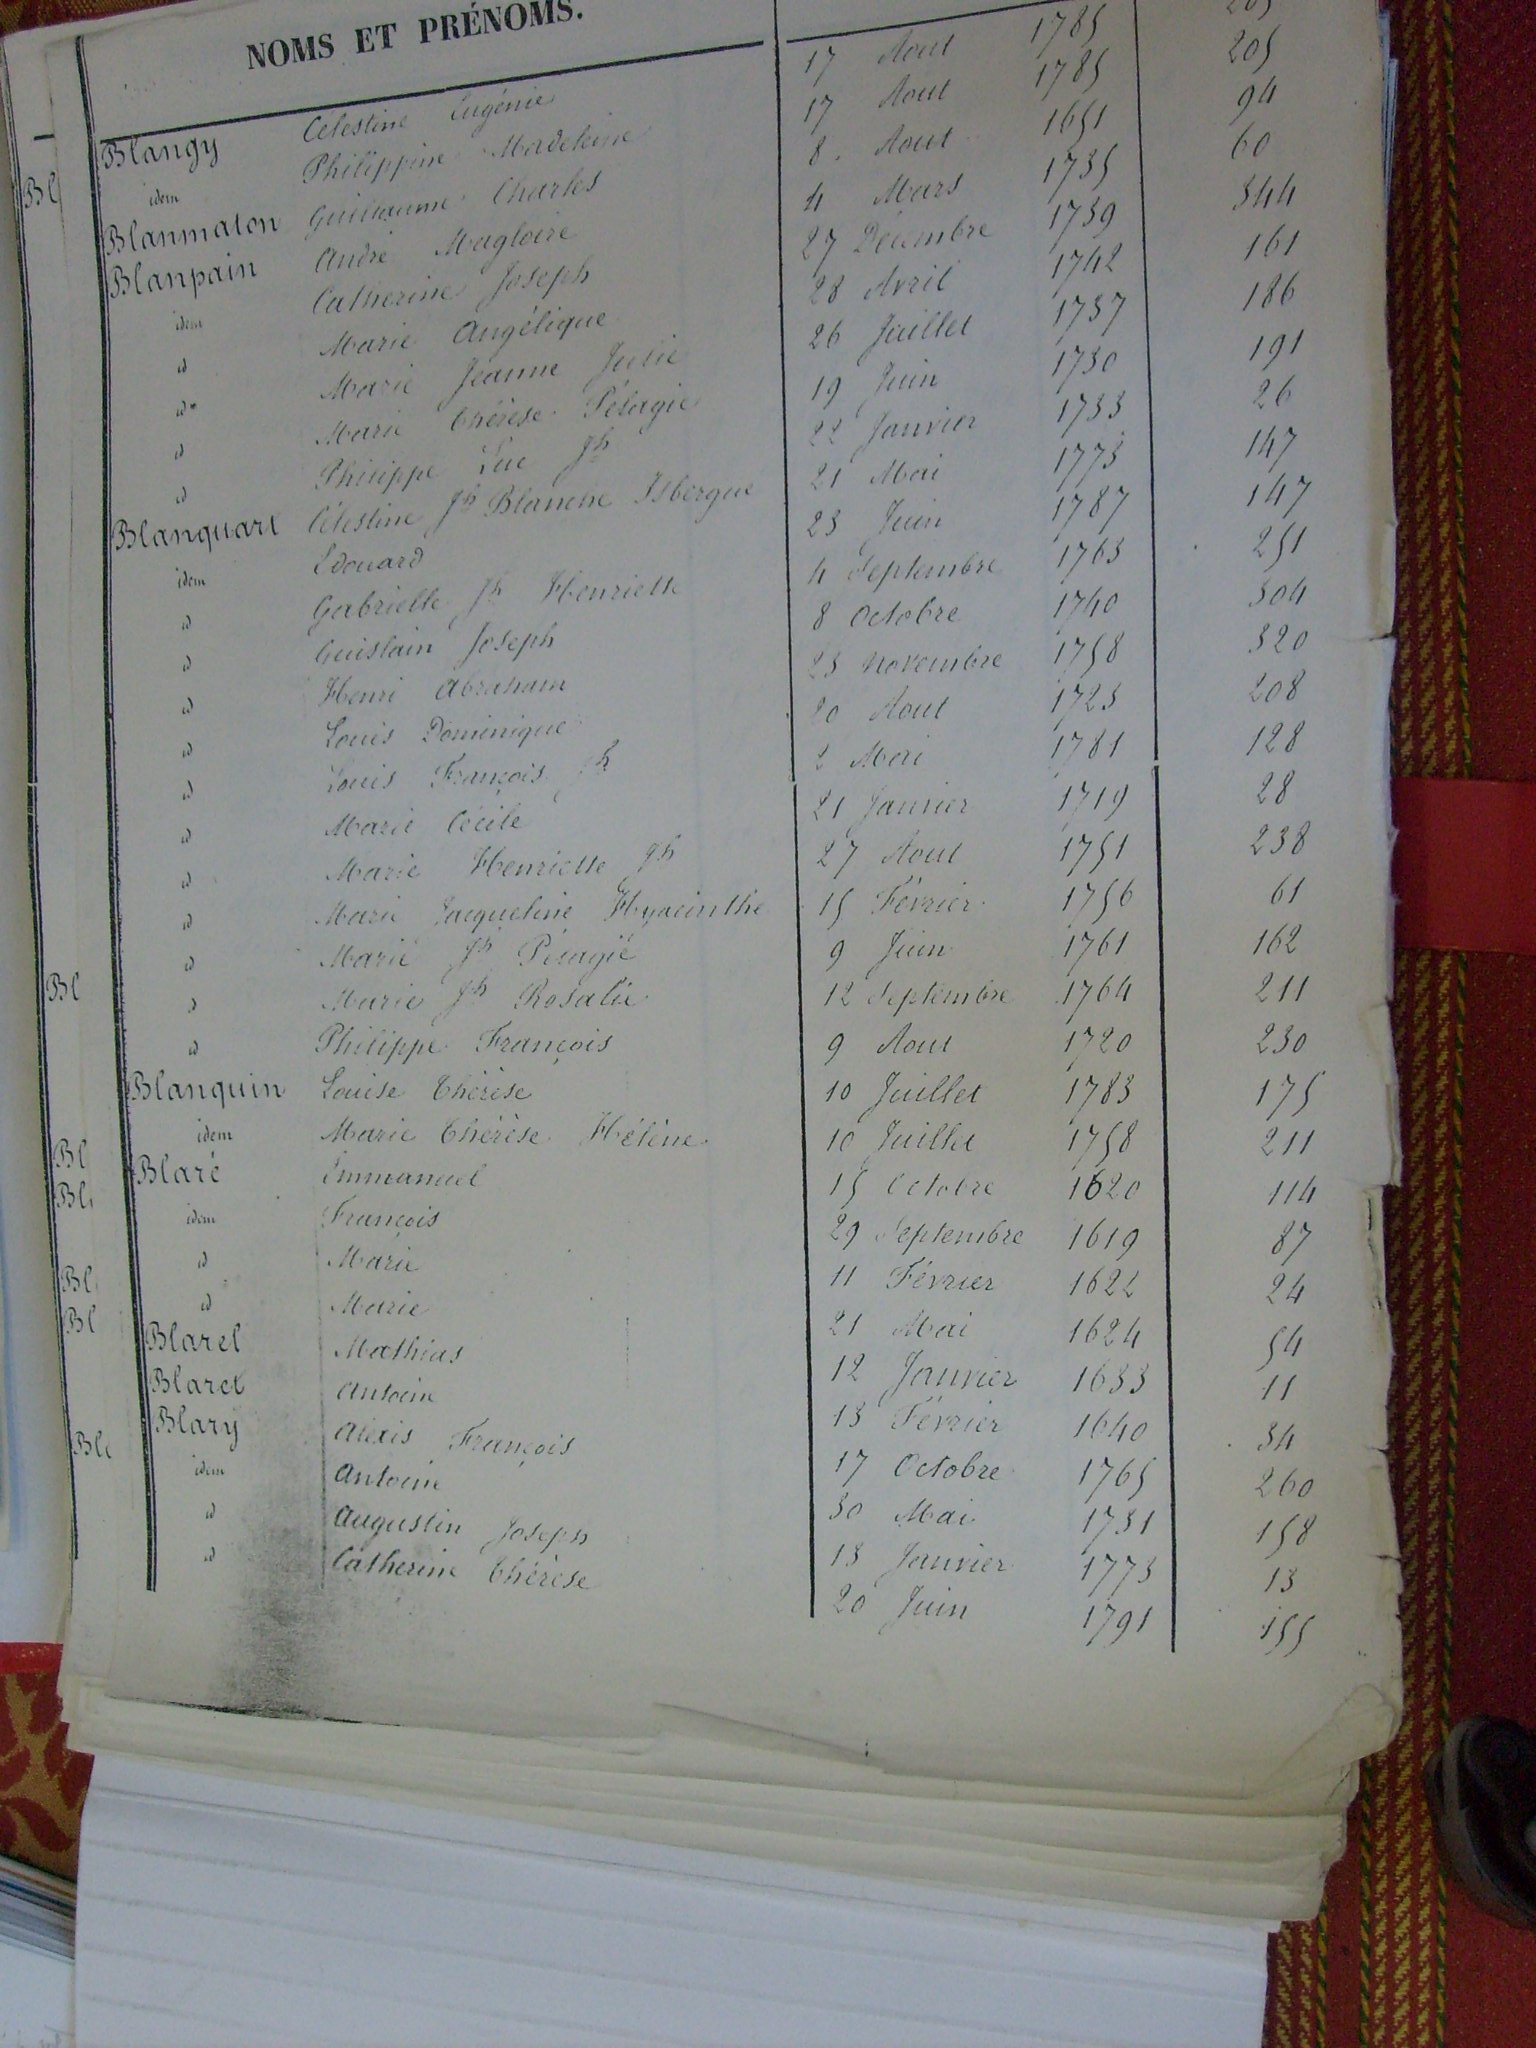 NOMS ET PRÉNOMS.
Blangy Celestine Eugénie 17 Aout 1785 205
idem Philippine Madeleine 17 Aout 1785 205
Blanmaton Guillaume Charles 8 Aout 1651 94
Blanpain André Magloire 4 Mars 1735 60
idem Catherine Joseph 27 Décembre 1739 344
id Marie Angélique 28 Avril 1742 161
id Marie Jeanne Julie 26 Juillet 1737 186
id Marie Thérèse Pélagie 19 Juin 1730 191
id Philippe Luc Jh 22 Janvier 1733 26
Blanquart Célestine Jh Blanche Isbergue 21 Mai 1773 147
idem Edouard 23 Juin 1787 147
id Gabrielle Jh Henriette 4 Septembre 1763 251
id Guislain Joseph 8 Octobre 1740 304
id Henri Abraham 23 Novembre 1758 320
id Louis Dominique 20 Aout 1723 208
id Louis François Jh 2 Mai 1781 128
id Marie Cécile 21 Janvier 1719 28
id Marie Henriette Jh 27 Aout 1751 238
id Marie Jacqueline Hyacinthe 15 Février 1756 61
id Marie Jh Pélagie 9 Juin 1761 162
id Marie Jh Rosalie 12 Septembre 1764 211
id Philippe François 9 Aout 1720 230
Blanquin Louise Thérèse 10 Juillet 1783 175
idem Marie Thérèse Hélène 10 Juillet 1758 211
Blaré Emmanuel 15 Octobre 1620 114
idem François 29 Septembre 1619 87
id Marie 11 Février 1622 24
id Marie 21 Mai 1624 54
Blarel Mathias 12 Janvier 1633 11
Blaret Antoine 13 Février 1640 34
Blary Alexis François 17 Octobre 1765 260
idem Antoine 30 Mai 1731 158
id Augustin Joseph 13 Janvier 1773 13
id Catherine Thérèse 20 Juin 1791 155